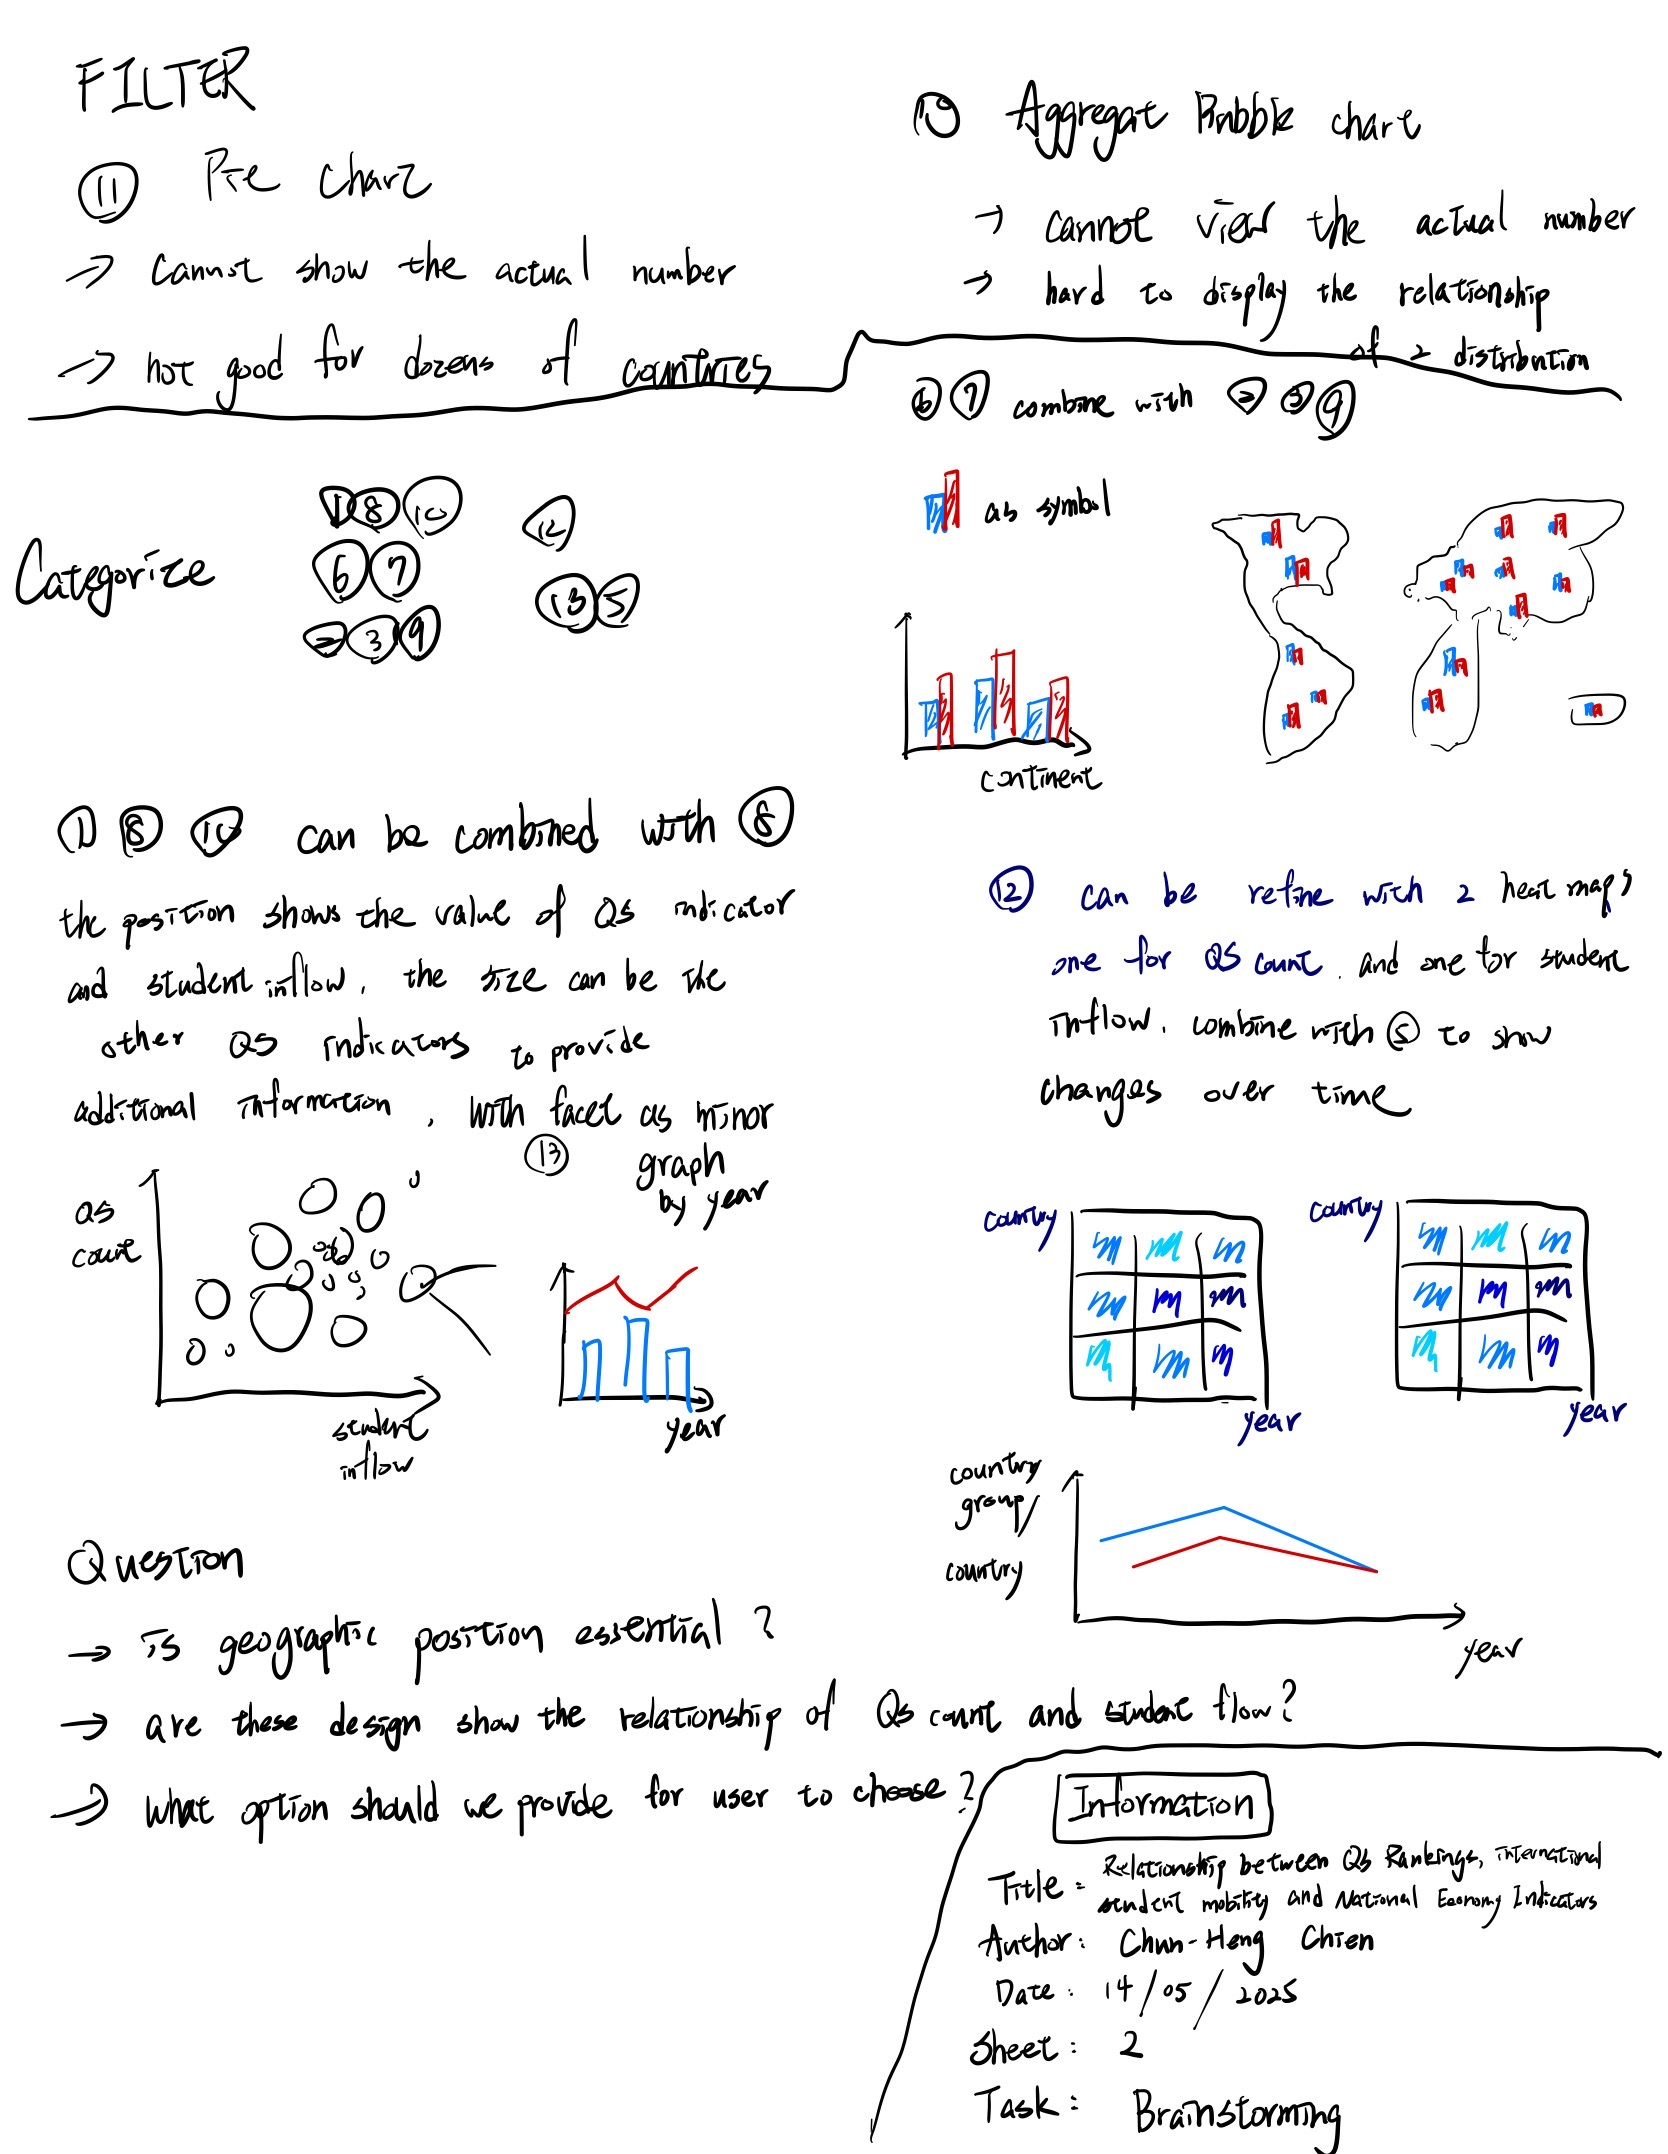 FILTER
⑪ Pie chart
→ cannot show the actual number
→ not good for dozens of countries
⑩ Aggregat Bubble chart
→ cannot view the actual number
→ hard to display the relationship
of 2 distribution
Categorize
① ⑧ ⑩
⑥ ⑦
② ③ ⑨
⑫
⑬ ⑤
⑥ ⑦ combine with ② ③ ⑨
as symbol
continent
① ⑧ ⑩ can be combined with ⑧
the position shows the value of QS indicator
and student inflow, the size can be the
other QS indicators to provide
additional information, with facet as minor
⑬ graph
by year
QS
count
student
inflow
year
⑫ can be refine with 2 heat maps
one for QS count, and one for student
inflow. combine with ⑤ to show
changes over time
country
year
country
year
country
group/
country
year
Question
→ is geographic position essential?
→ are these design show the relationship of QS count and student flow?
→ what option should we provide for user to choose?
Information
Title: Relationship between QS Rankings, international
student mobility and National Economy Indicators
Author: Chun-Heng Chien
Date: 14/05/2025
Sheet: 2
Task: Brainstorming